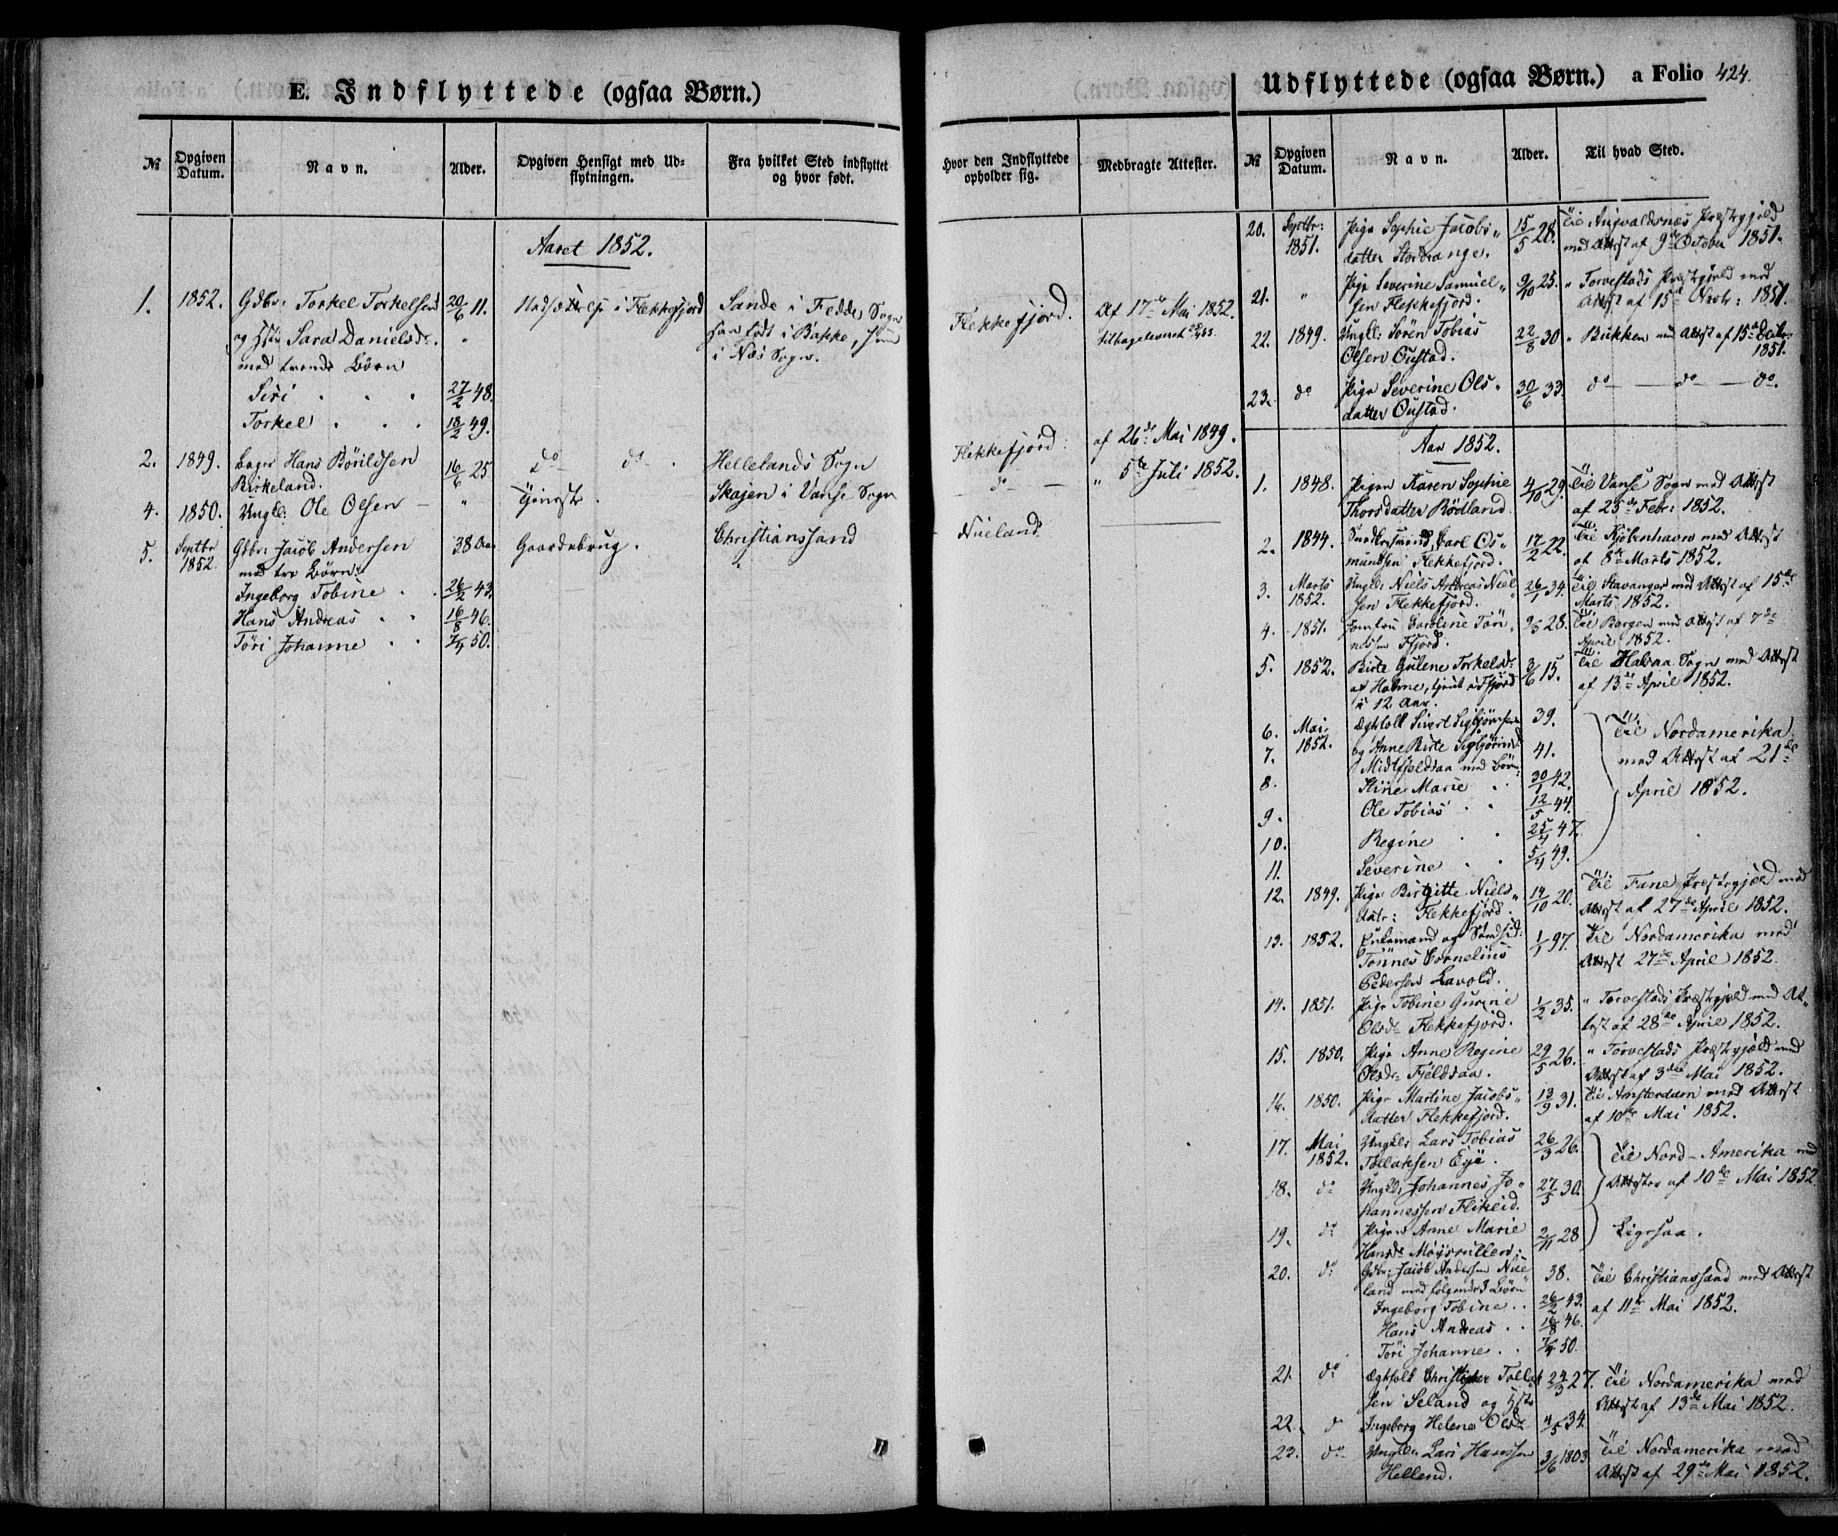 E. Indflyttede (ogsaa Børn.)
№
Opgiven Datum.
Navn.
Alder.
Opgiven Hensigt med Udflytningen.
Fra hvilket Sted indflyttet og hvor født.
Aaret 1852.
1. 1852. Gdbr. Torkel Torkelsen 20/6 11. i Flekkefjord Sande i Fedde Sogn
og Sara Danielsd. " han født i Bakke, hun
med tvende Børn i Næs Sogn.
Siri . . . 27/2 48.
Torkel . . . 18/2 49.
2. 1849. Bager Hans Börildsen 16/6 25 do do . Hellelands Sogn
Birkeland.
4. 1850. Ungk: Ole Olsen — " Tjeneste . Skajen i Vanse Sogn
5. Septbr 1852 Gdbr: Jacob Andersen 38 Aar Gaardsbrug. Christianssand
med tre Børn:
Ingeborg Tobine . . 26/2 43.
Hans Andreas . . 16/8 46.
Töri Johanne . . 7/4 50.
Hvor den Indflyttede opholder sig.
Medbragte Attester.
Flekkefjord. Af 17de Mai 1852.
Flekkefjord. af 26de Mai 1849.
do — — " 5te Juli 1852.
Nueland.
Udflyttede (ogsaa Børn.) a Folio 424.
№
Opgiven Datum.
Navn.
Alder.
Til hvad Sted.
20. Septbr: 1851. Pige Sophie Jacobs- 15/5 28. Til Augvaldsnæs Præstegjæld
datter Stordrange. med Attest af 9de October 1851.
21. " Pige Severine Samuel- 9/10 25. " Torvestads Præstegjæld med
sen Flekkefjord. Attest af 15de Novbr: 1851.
22. 1849. Ungk: Sören Tobias 22/8 30 " Bukken med Attest af 15de Decbr
Olsen Oustad. 1851.
23. do Pige Severine Ols- 30/6 33. do — do — do.
datter Oustad.
Aar 1852.
1. 1848. Pigen Karen Sophie 4/10 29. Til Vanse Sogn med Attest
Thorsdatter Rödland. af 25de Febr: 1852.
2. 1844. Carl Os- 17/2 22. Til Kjöbenhavn med Attest
mundsen Flekkefjord. af 8de Marts 1852.
3. Marts 1852. Ungk: Niels Andreas Niel- 26/1 34. Til Stavanger med Attest af 15de
sen Flekkefjord. Marts 1852.
4. 1851. Jomfru Caroline Tön- 9/5 28. Til Bergen med Attest af 7de
Ffjord. April 1852.
5. 1852. Birte Gulene Torkelsd. 3/6 15. Til Sogn med Attest
af Holme, tjent i Ffjord af 13de April 1852.
i 12 Aar.
6. Mai 1852. Ægtfolk Sivert Sigbjörnsen 39. Til Nordamerika
7. og Anne Birte Sigbjörnsd 41. med Attest af 21de
Midtfjeldsaa med Börn: April 1852.
8. Stine Marie . . 30/1 42.
9. Ole Tobias . . 12/5 44.
10. Regine . . 25/4 47.
11. Severine . . 5/4 49.
12. 1849. Pige Birgitte Niels- 14/10 20. Til Fane Præstegjæld med
datr: Flekkefjord. Attest af 27de April 1852.
13. 1852. Enkemand og 1/1 97. Til Nordamerika med
Tönnes Cornelius Attest 27de April 1852.
Pedersen Lavold.
14. 1851. Pige Tobine Gurine 1/2 35. " Torvestads Præstegjæld med At-
Olsdr Flekkefjord. test af 28de April 1852.
15. 1850. Pige Anne Regine 29/5 26. " Torvestads Præstegjæld med
Olsdr Fjeldsaa. Attest af 3die Mai 1852.
16. 1850. Pige Martine Jacobs- 13/9 31. Til Amsterdam med Attest
datter Flekkefjord. af 10de Mai 1852.
17. Mai 1852. Ungk: Lars Tobias 26/3 26. Til Nord-Amerika med
Tollaksen Eye. Attester af 10de Mai 1852
18. do Ungk: Johannes Jo- 27/5 30.
hannessen Flikeid.
19. do Pigen Anne Marie 2/11 28 Ligesaa.
Hansdr
20. do Gdbr: Jacob Andersen Nue- 38. Til Christianssand med Attest
land med følgende 3 Börn af 11te Mai 1852.
Ingeborg Tobine . . 26/2 43.
Hans Andreas . . 16/8 46.
Töri Johanne . . 7/4 50.
21. do Ægtfolk Christopher 24/3 27. Til Nordamerika med
sen Seland og Attest af 13de Mai 1852.
22. do Ingeborg Helene Olsdr 4/5 34.
23. do Ungk: Lars Hansen 3/6 1803 Til Nordamerika med
Helland. Attest af 29de Mai 1852.